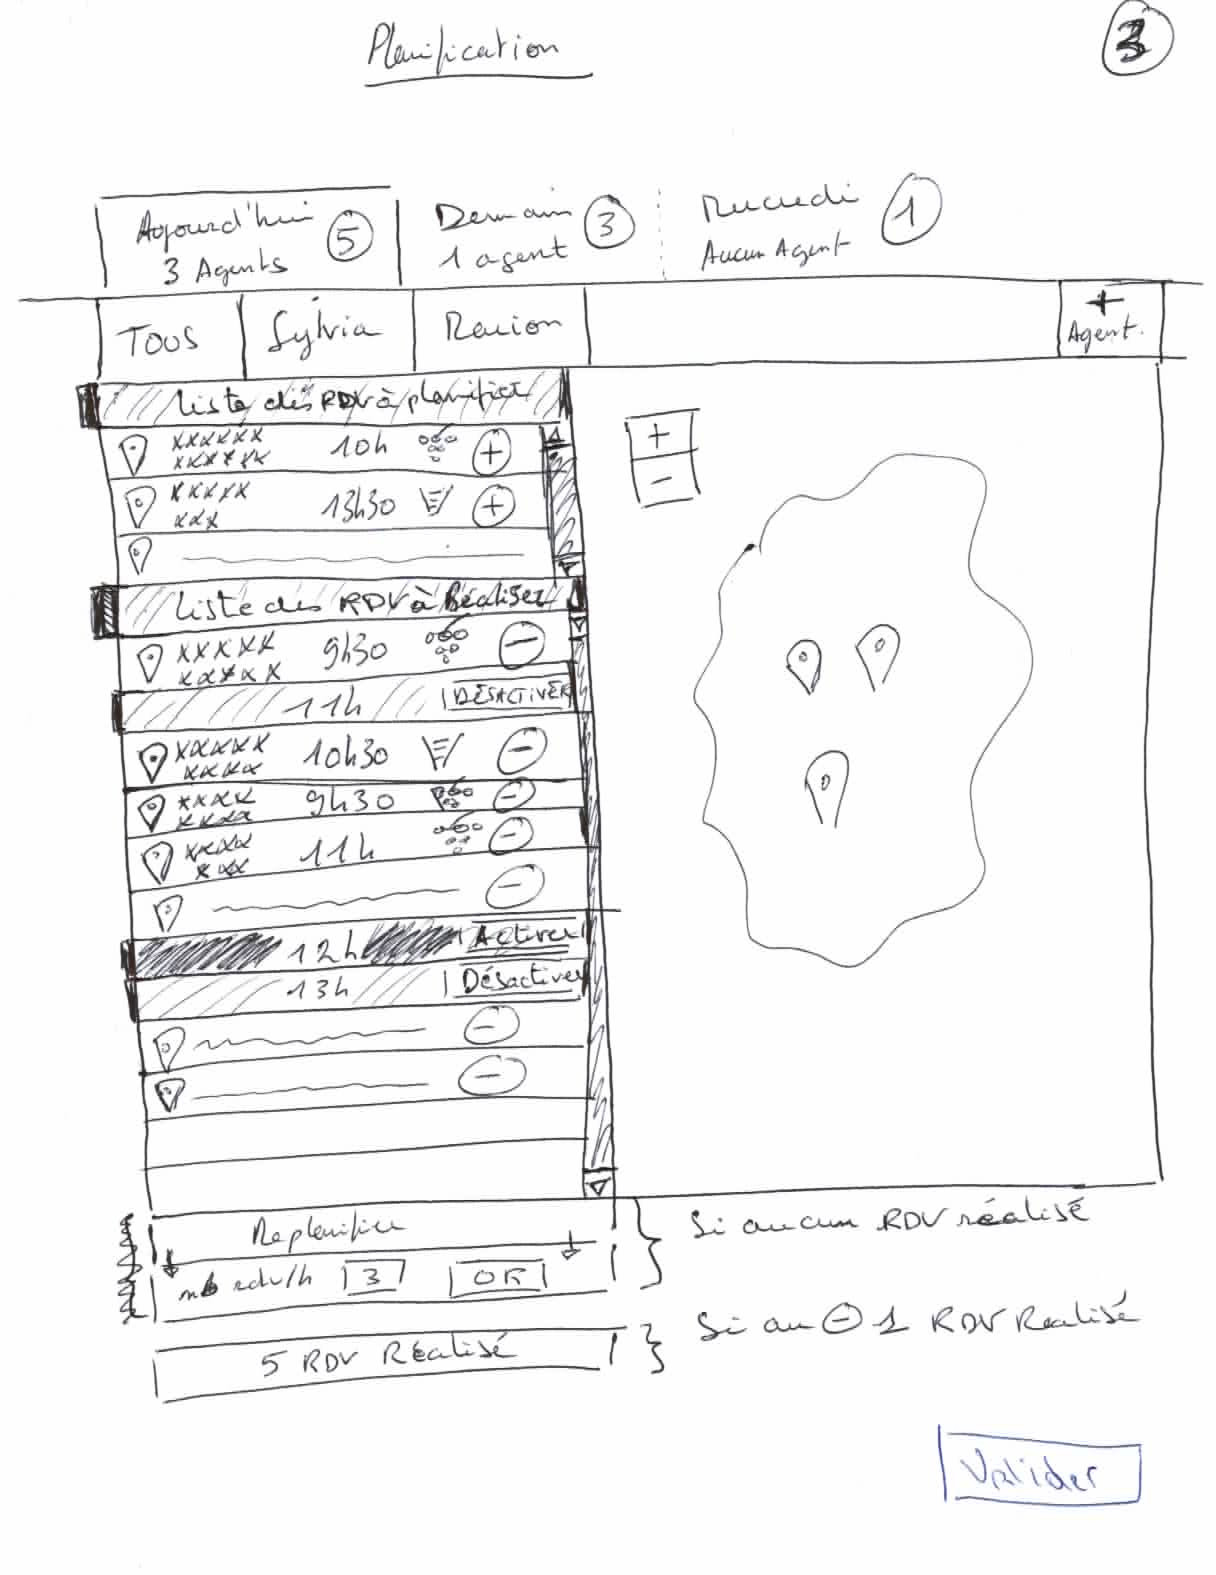 Planification
3
Aujourd'hui
3 Agents
5
Demain
1 agent
3
Mercredi
Aucun Agent
1
TOUS
Sylvia
+
Agent.
Liste des RDV à planifier
xxxxxx
xxxxxx
10h
+
xxxxx
xxx
13h30
+
Liste des RDV à Réaliser
xxxxx
xxxxx
9h30
-
11h
DÉSACTIVER
xxxxx
xxxx
10h30
-
xxxx
xxxx
9h30
-
xxxx
xxx
11h
-
-
12h
Activer
13h
Désactiver
-
-
+
-
Replanifier
nb rdv/h 3 OK
Si aucun RDV réalisé
5 RDV Réalisé
Si au - 1 RDV Realisé
Valider